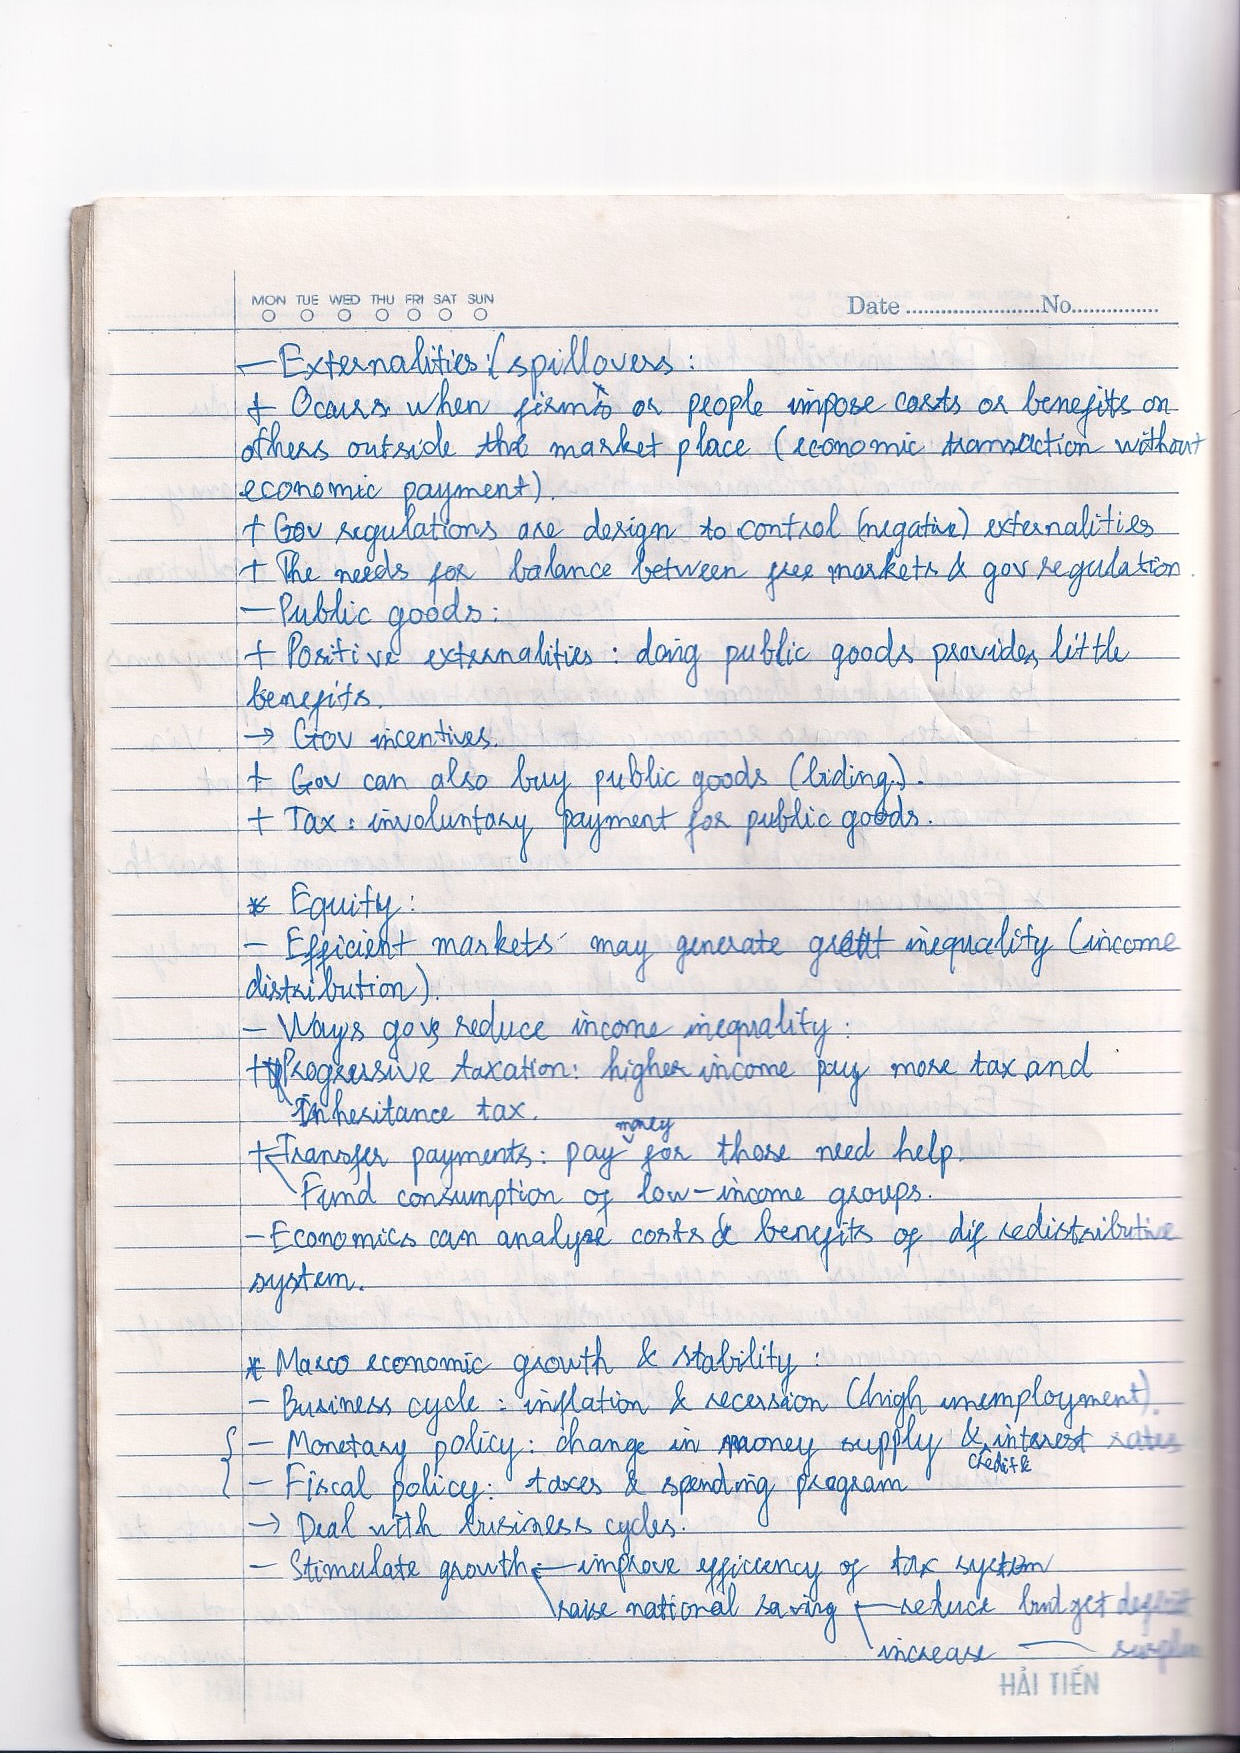 MON TUE WED THU FRI SAT SUN
Date ........................No................
— Externalities: (spillovers :
+ Ocaurs when firms or people impose costs or benefits on
others outside the market place (economic transaction without
economic payment).
+ Gov regulations are design to control (negative) externalities
+ The needs for balance between free markets & gov regulation.
— Public goods :
+ Positive externalities : doing public goods provides little
benefits.
→ Gov incentives.
+ Gov can also buy public goods (biding).
+ Tax : involuntary payment for public goods.
* Equity :
- Efficient markets may generate great inequality (income
distribution).
- Ways govs reduce income inequality :
+ Progressive taxation: higher income pay more tax and
Inheritance tax.
+ Transfer payments: pay money for those need help.
Fund consumption of low-income groups.
- Economics can analyze costs & benefits of dif redistributive
system.
* Marco economic growth & stability :
- Business cycle : inflation & recession (high unemployment).
- Monetary policy : change in money supply & credit & interest rates
- Fiscal policy : taxes & spending program
→ Deal with business cycles.
- Stimulate growth — improve efficency of tax system
raise national saving — reduce budget deficit
increase — surplus
HẢI TIẾN